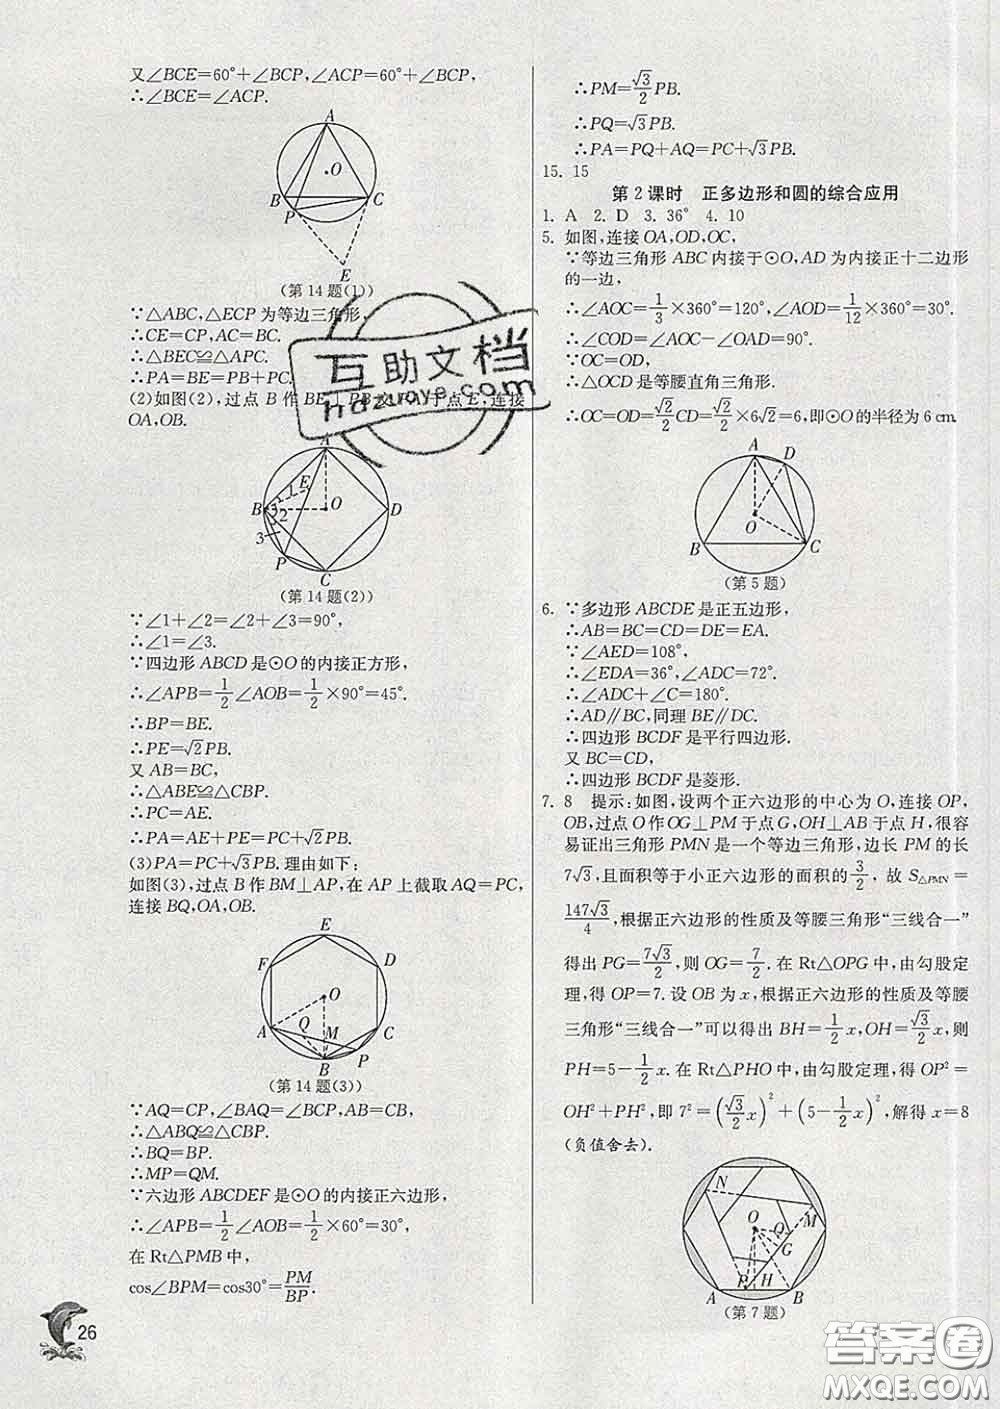 又∠BCE=60°+∠BCP,∠ACP=60°+∠BCP,
∴∠BCE=∠ACP.
A
O
B
C
P
E
(第14题(1))
∵△ABC,△ECP为等边三角形,
∴CE=CP,AC=BC.
∴△BEC≌△APC.
∴PA=BE=PB+PC.
(2)如图(2),过点B作BE⊥PB交
于点E,连接
OA,OB.
A
E
1
B
2
O
D
3
P
C
(第14题(2))
∵∠1+∠2=∠2+∠3=90°,
∴∠1=∠3.
∵四边形ABCD是⊙O的内接正方形,
∴∠APB=1/2∠AOB=1/2×90°=45°.
∴BP=BE.
∴PE=√2PB.
又AB=BC,
∴△ABE≌△CBP.
∴PC=AE.
∴PA=AE+PE=PC+√2PB.
(3)PA=PC+√3PB.理由如下:
如图(3),过点B作BM⊥AP,在AP上截取AQ=PC,
连接BQ,OA,OB.
E
F
D
O
Q
A
M
C
P
B
(第14题(3))
∵AQ=CP,∠BAQ=∠BCP,AB=CB,
∴△ABQ≌△CBP.
∴BQ=BP.
∴MP=QM.
∵六边形ABCDEF是⊙O的内接正六边形,
∴∠APB=1/2∠AOB=1/2×60°=30°,
在Rt△PMB中,
cos∠BPM=cos30°=PM/BP.
26
∴PM=√3/2PB.
∴PQ=√3PB.
∴PA=PQ+AQ=PC+√3PB.
15. 15
第2课时 正多边形和圆的综合应用
1. A 2. D 3. 36° 4. 10
5. 如图,连接OA,OD,OC,
∵等边三角形ABC内接于⊙O,AD为内接正十二边形
的一边,
∴∠AOC=1/3×360°=120°,∠AOD=1/12×360°=30°.
∴∠COD=∠AOC−∠OAD=90°.
∵OC=OD,
∴△OCD是等腰直角三角形.
∴OC=OD=√2/2CD=√2/2×6√2=6,即⊙O的半径为6 cm.
A
D
O
B
C
(第5题)
6. ∵多边形ABCDE是正五边形,
∴AB=BC=CD=DE=EA.
∵∠AED=108°,
∴∠EDA=36°,∠ADC=72°.
∴∠ADC+∠C=180°.
∴AD∥BC,同理BE∥DC.
∴四边形BCDF是平行四边形.
又BC=CD,
∴四边形BCDF是菱形.
7. 8 提示:如图,设两个正六边形的中心为O,连接OP,
OB,过点O作OG⊥PM于点G,OH⊥AB于点H,很容
易证出三角形PMN是一个等边三角形,边长PM的长
7√3,且面积等于小正六边形的面积的3/2,故S△PMN=
147√3/4,根据正六边形的性质及等腰三角形“三线合一”
得出PG=7√3/2,则OG=7/2.在Rt△OPG中,由勾股定
理,得OP=7.设OB为x,根据正六边形的性质及等腰
三角形“三线合一”可以得出BH=1/2x,OH=√3/2x,则
PH=5−1/2x.在Rt△PHO中,由勾股定理,得OP²=
OH²+PH²,即7²=(√3/2x)²+(5−1/2x)²,解得x=8
(负值舍去).
N
M
O
Q
G
P
H
A
B
(第7题)
互助文档
hdzuoye.com
答案圈
MXQE.COM